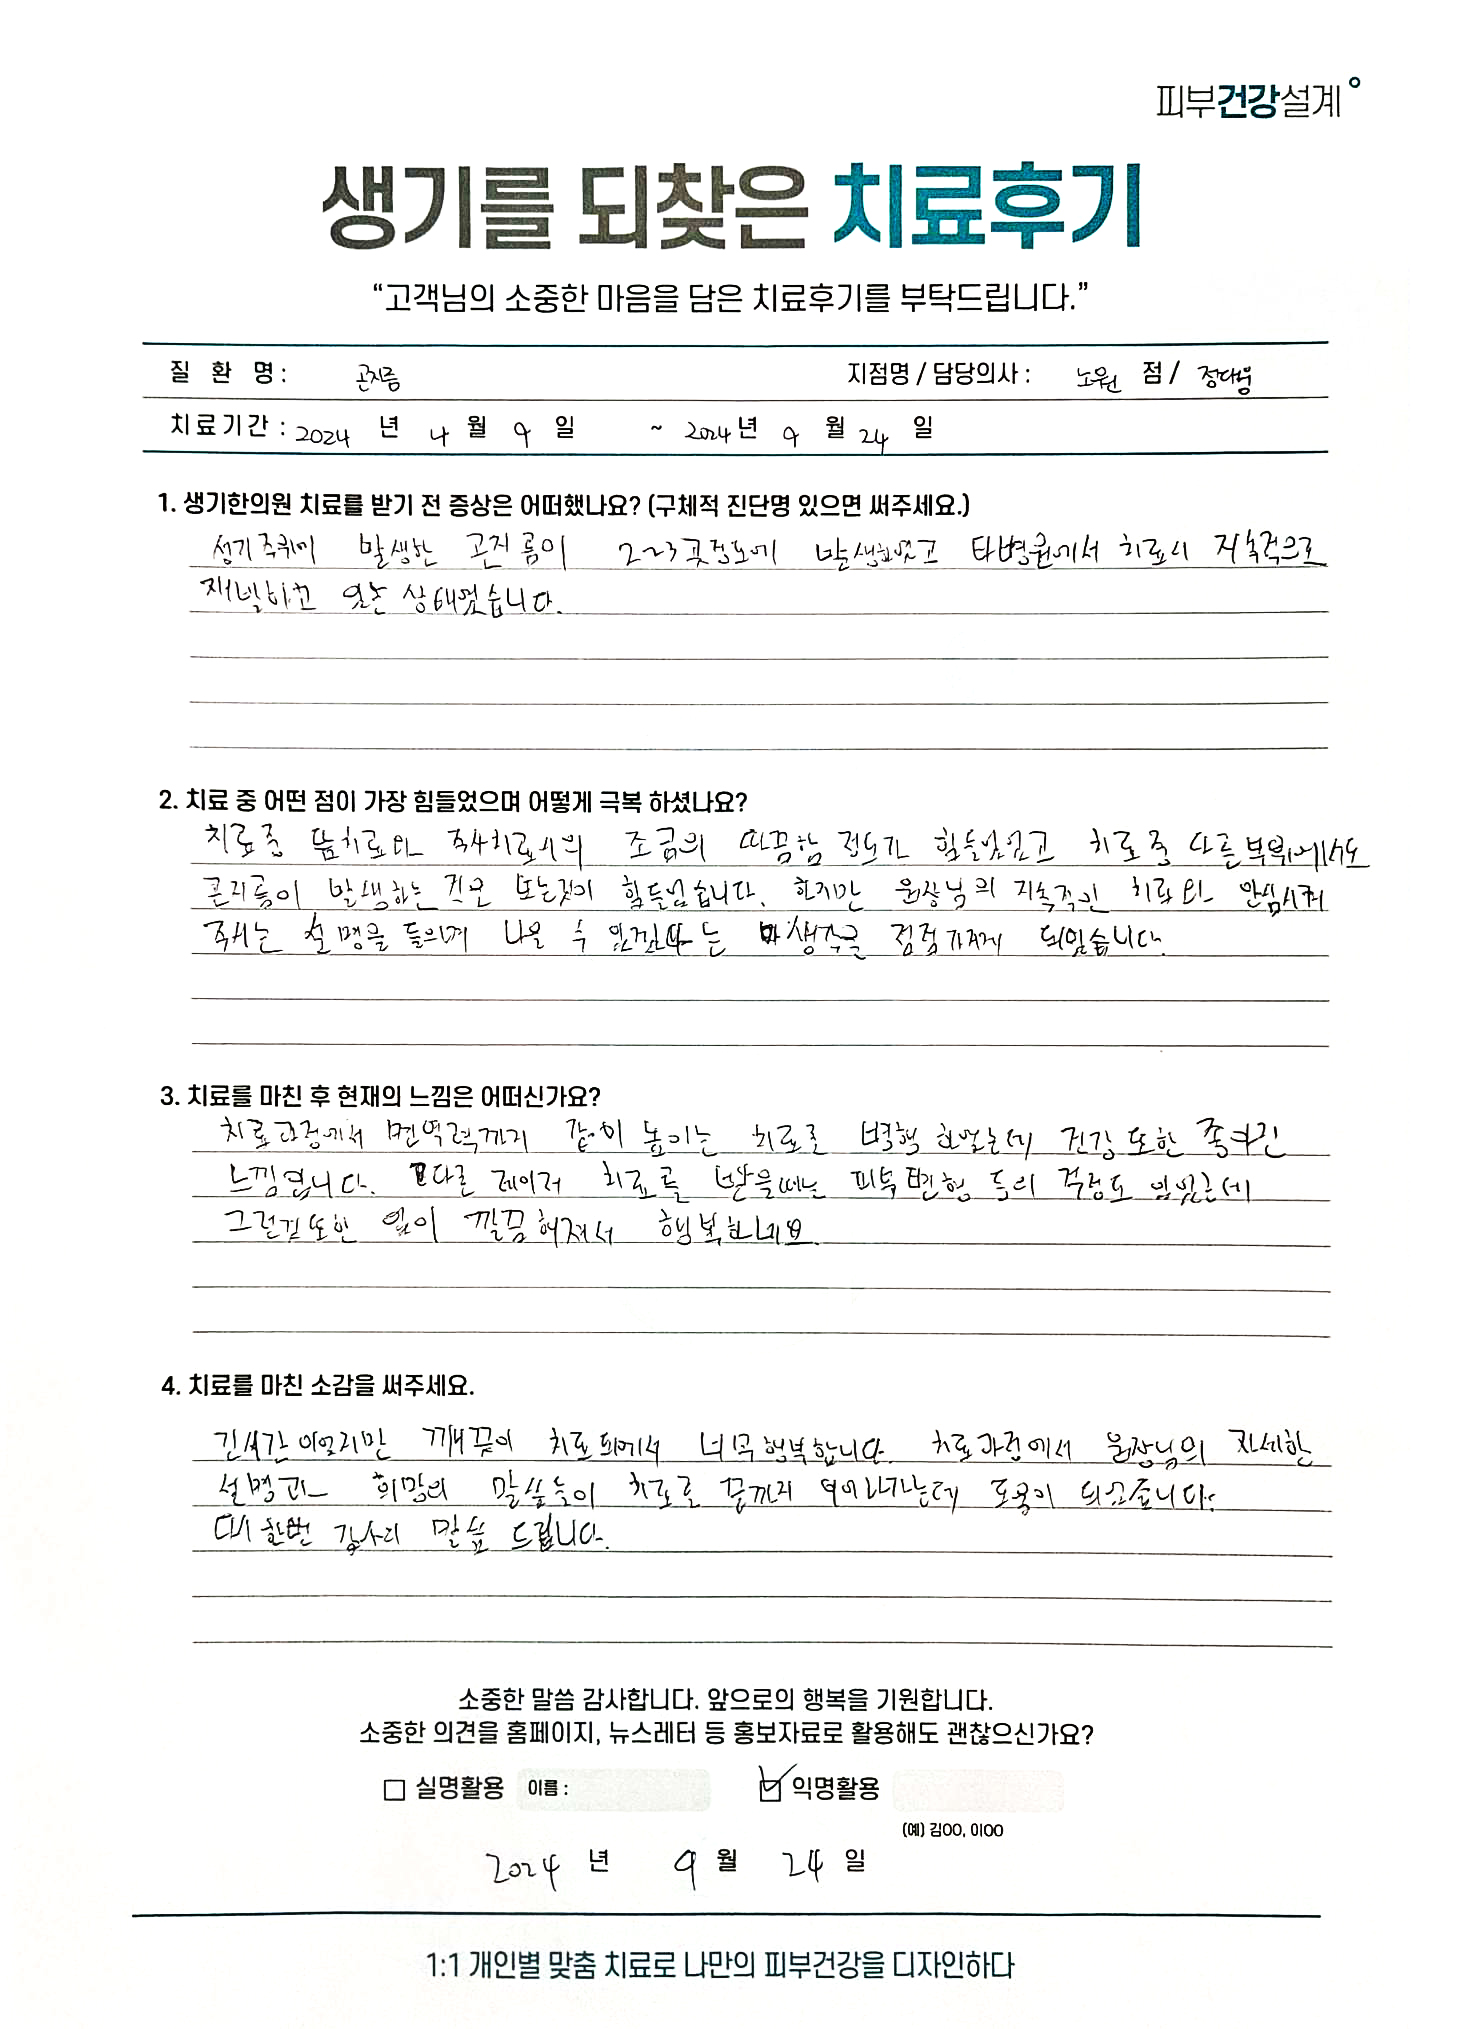 피부건강설계
생기를 되찾은 치료후기
“고객님의 소중한 마음을 담은 치료후기를 부탁드립니다.”
질 환 명 : 곤지름 지점명 / 담당의사 : 노원 점 / 정대웅
치료기간 : 2024 년 4 월 9 일 ~ 2024 년 9 월 24 일
1. 생기한의원 치료를 받기 전 증상은 어떠했나요? (구체적 진단명 있으면 써주세요.)
성기주위에 발생한 곤지름이 2~3곳정도에 발생하였고 타병원에서 치료시 지속적으로
재발하고 있는 상태였습니다.
2. 치료 중 어떤 점이 가장 힘들었으며 어떻게 극복 하셨나요?
치료중 뜸치료와 주사치료시의 조금의 따끔함 정도가 힘들었었고 치료중 다른부위에서도
곤지름이 발생하는 것은 보는것이 힘들었습니다. 하지만 원장님의 지속적인 치료와 안심시켜
주시는 설명을 들으며 나을 수 있겠다 는 생각을 점점가지게 되었습니다.
3. 치료를 마친 후 현재의 느낌은 어떠신가요?
치료과정에서 면역력까지 같이 높이는 치료로 병행 하였는데 건강 또한 좋아진
느낌입니다. 다른 레이저 치료를 받을때는 피부변형 등의 걱정도 있었는데
그런것 또한 없이 깔끔해져서 행복하네요.
4. 치료를 마친 소감을 써주세요.
긴시간 이였지만 깨끗이 치료되어서 너무행복합니다. 치료과정에서 원장님의 자세한
설명과 희망의 말씀들이 치료를 끝까지 이어나가는데 도움이 되었습니다.
다시한번 감사의 말씀 드립니다.
소중한 말씀 감사합니다. 앞으로의 행복을 기원합니다.
소중한 의견을 홈페이지, 뉴스레터 등 홍보자료로 활용해도 괜찮으신가요?
실명활용 이름 : 익명활용
(예) 김OO, 이OO
2024 년 9 월 24 일
1:1 개인별 맞춤 치료로 나만의 피부건강을 디자인하다